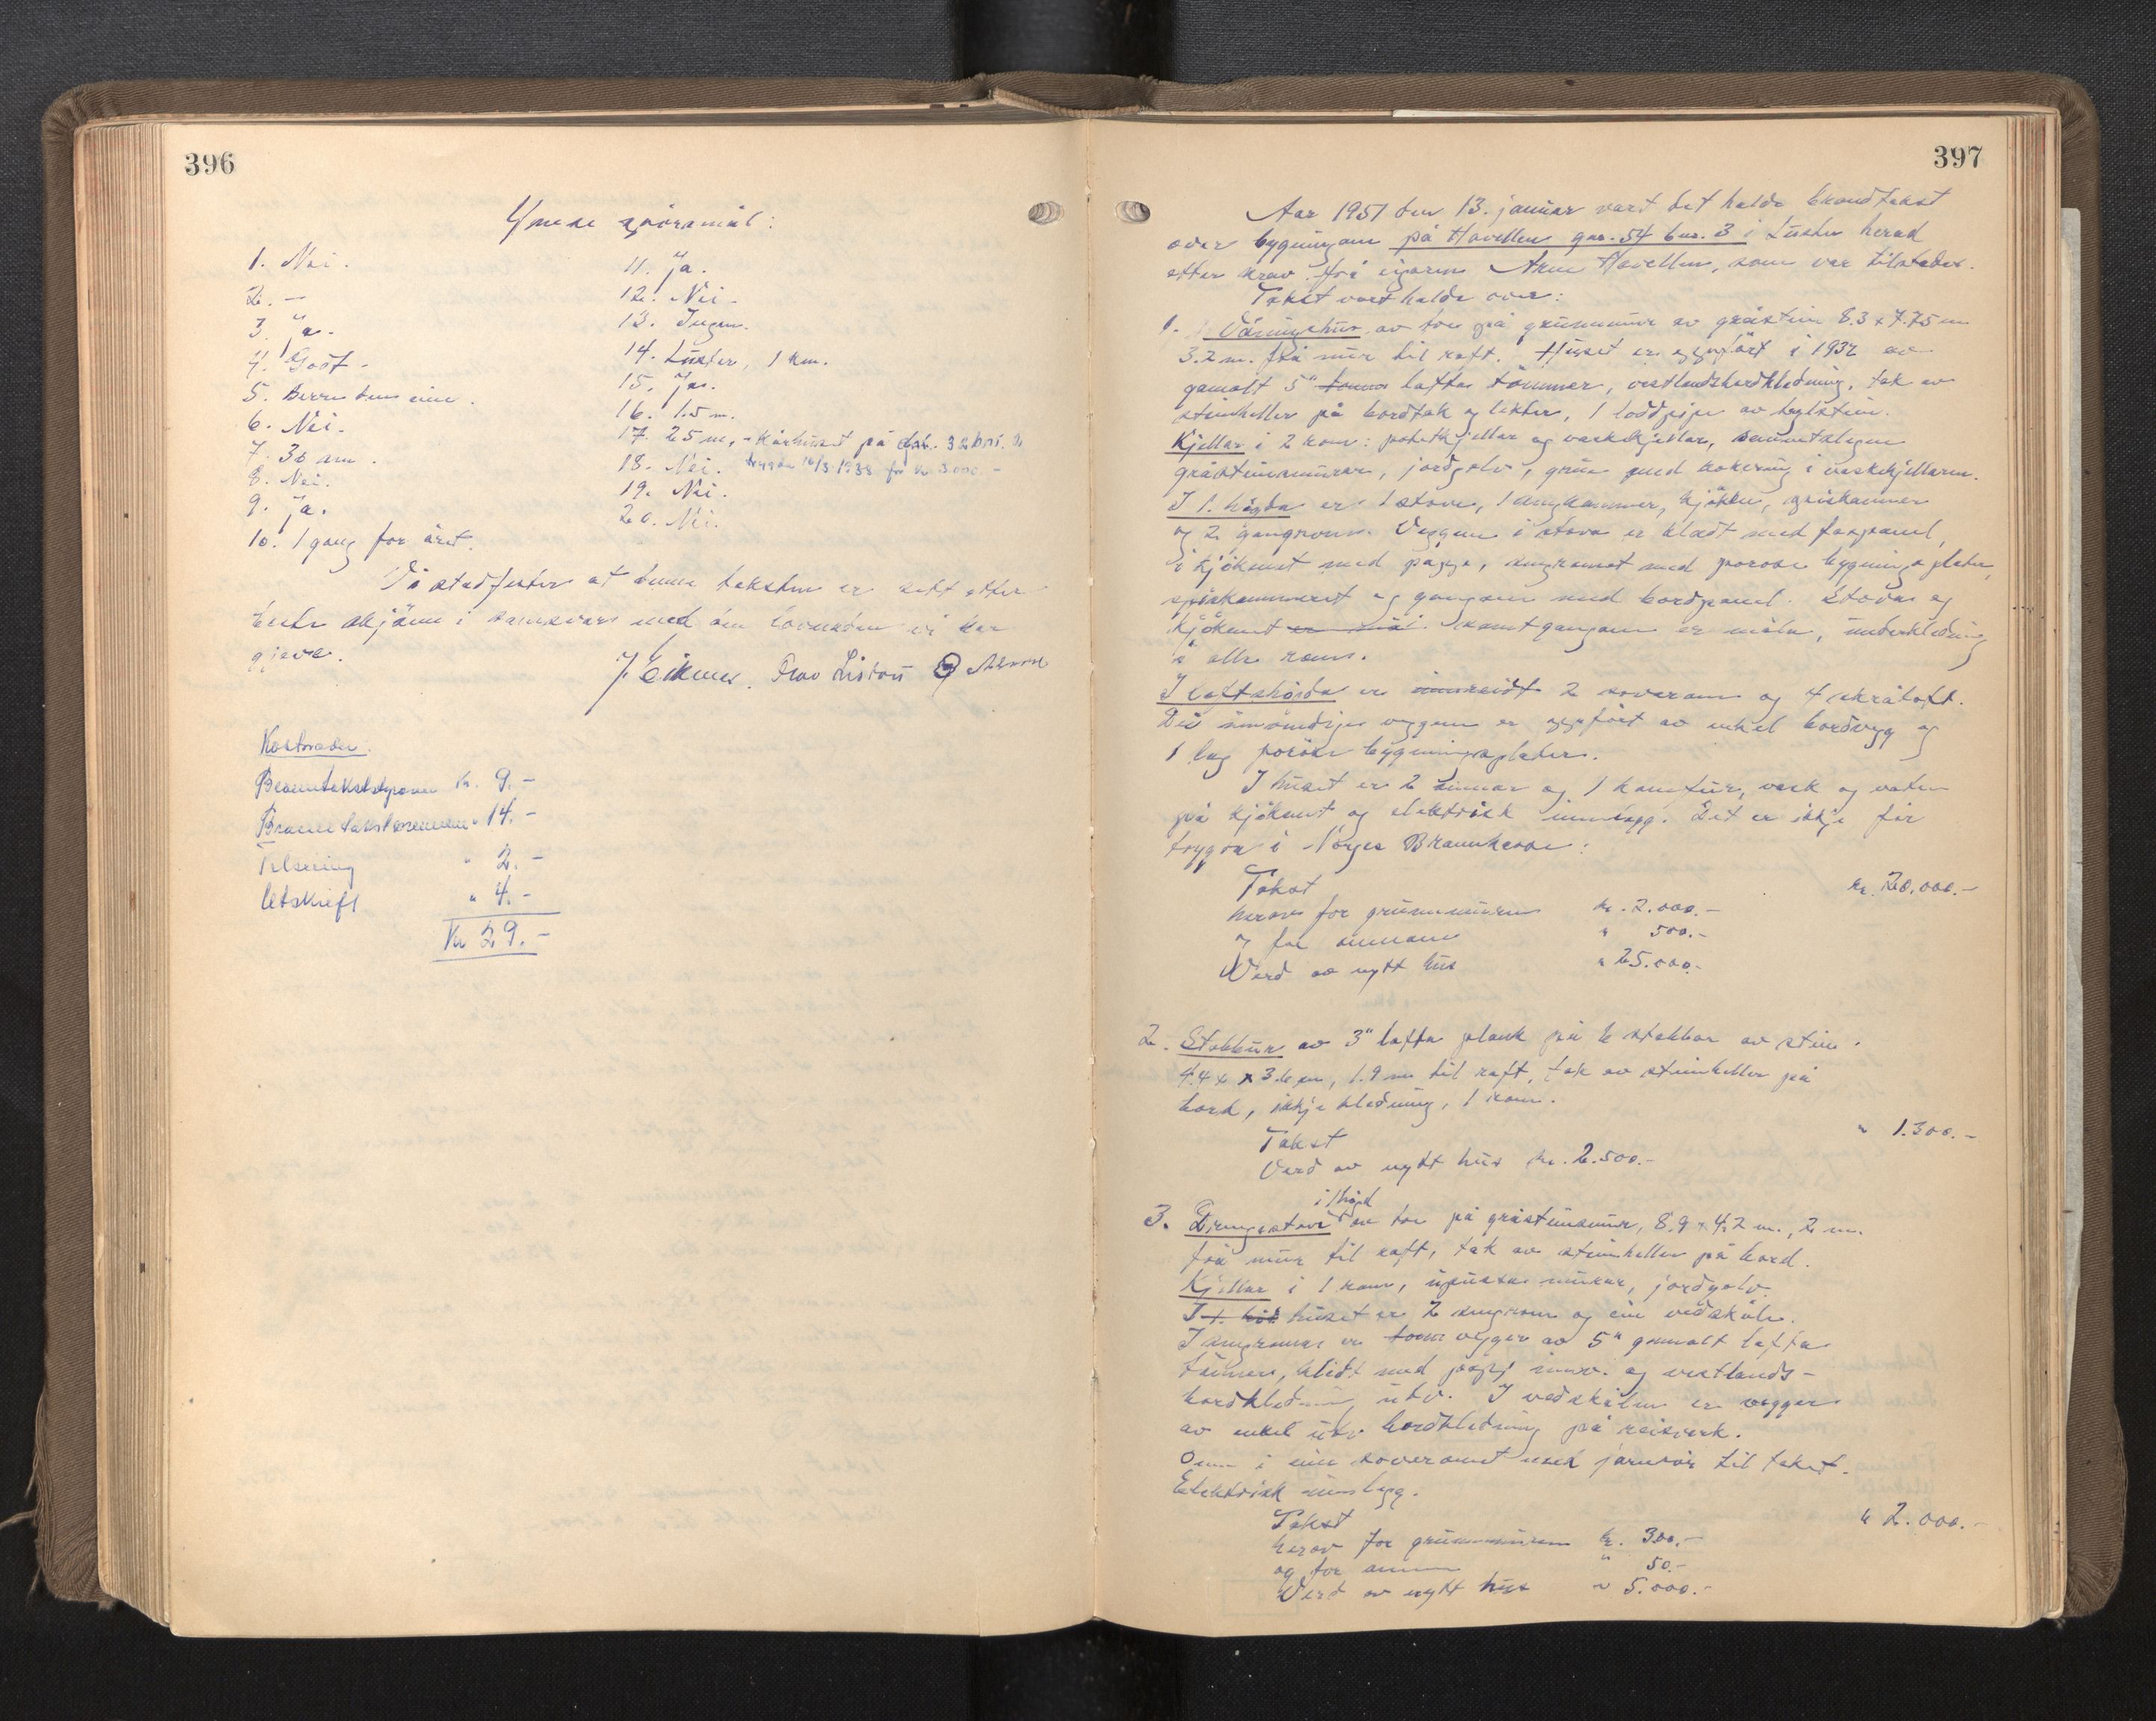 396
Ymse spörsmål:
1. Nei.
2. —
3. Ja.
4. Godt.
5. Berre den eine.
6. Nei.
7. 30 cm.
8. Nei.
9. Ja.
10. 1 gang for året.
11. Ja.
12. Nei.
13. Ingen.
14. Luster, 1 km.
15. Ja.
16. 1.5 m.
17. 25 m, - Kårhuset på gnr. 32 bnr. 2
18. Nei. trygda 16/5-1938 for kr 3000.-
19. Nei.
20. Nei.
Vi stadfester at denne taksten er sett etter
beste skjönn i samsvar med den lovnaden vi har
gjeve.
J. Eikum. Olav Liston
Kostnader.
Branntakstskjema kr. 9.-
Branntakstmennene " 14.-
Telsering " 2.-
Utskrift " 4.-
Kr 29.-
397
Aar 1951 den 13. januar vart det halde brandtakst
over bygningane på Hovellen gnr. 54 bnr. 3 i Luster herad
etter krav frå eigaren Arne Hovellen, som var tilstades.
Takst vart halde over:
1. Våningshus av tre på grunnmur av gråstein 8.3 x 7.75 m
3.2 m. frå mur til raft. Huset er oppfört i 1932 av
gamalt 5" tømmer lafta tömmer, vestlandsbordkledning, tak av
steinheller på bordtak og lekter, 1 loddpipe av teglstein.
Kjellar i 2 rom: potetkjellar og vaskekjellar, sementslegne
gråsteinsmurar, jordgolv, grue med bakering i vaskekjellaren.
I 1. högda er 1 stove, 1 sengkammer, kjökken, spiskammer
og 2 gangrom. Veggene i stova er kledt med faspanel,
i kjökenet med papp, sengromet med porøse bygningsplater,
spiskammeret og gangane med bordpanel. Stova og
kjökenet er må samt gangane er måla, underkledning
i alle rom.
I loftshögda er innreidt 2 soverom og 4 skråloft.
Dei innvendige veggene er oppfört av enkel bordvegg og
1 lag porøse bygningsplater.
I huset er 2 omnar og 1 komfur, vask og vatn
på kjökenet og elektrisk innlegg. Det er ikkje för
trygda i Norges Brannkasse:
Takst kr. 20.000.-
herav for grunnmuren kr. 2.000.-
og for omnane " 500.-
Verd av nytt hus " 25.000.-
2. Stabbur av 3" lafta plank på 6 stabbar av stein.
4.4 x 3.6 m, 1.9 m til raft, tak av steinheller på
bord, ikkje kledning, 1 rom.
Takst " 1.300.-
Verd av nytt hus kr. 2.500.-
i 1 høgd
3. Drengestove av tre på gråsteinsmur, 8.9 x 4.2 m., 2 m.
frå mur til raft, tak av steinheller på bord.
Kjellar i 1 rom, upussa murar, jordgolv.
I 1. hög huset er 2 sengrom og ein vedskåle.
I sengromma er tomm vegger av 5" gamalt lafta
tömmer, kledt med papp innv. og vestlands-
bordkledning utv. I vedskålen er vegger
av enkel utv bordkledning på reisverk.
Omn i eine soveromet med jarnrör til taket.
Elektrisk innlegg.
Takst " 2.000.-
herav for grunnmuren kr. 300.-
og for omnen " 50.-
Verd av nytt hus " 5.000.-